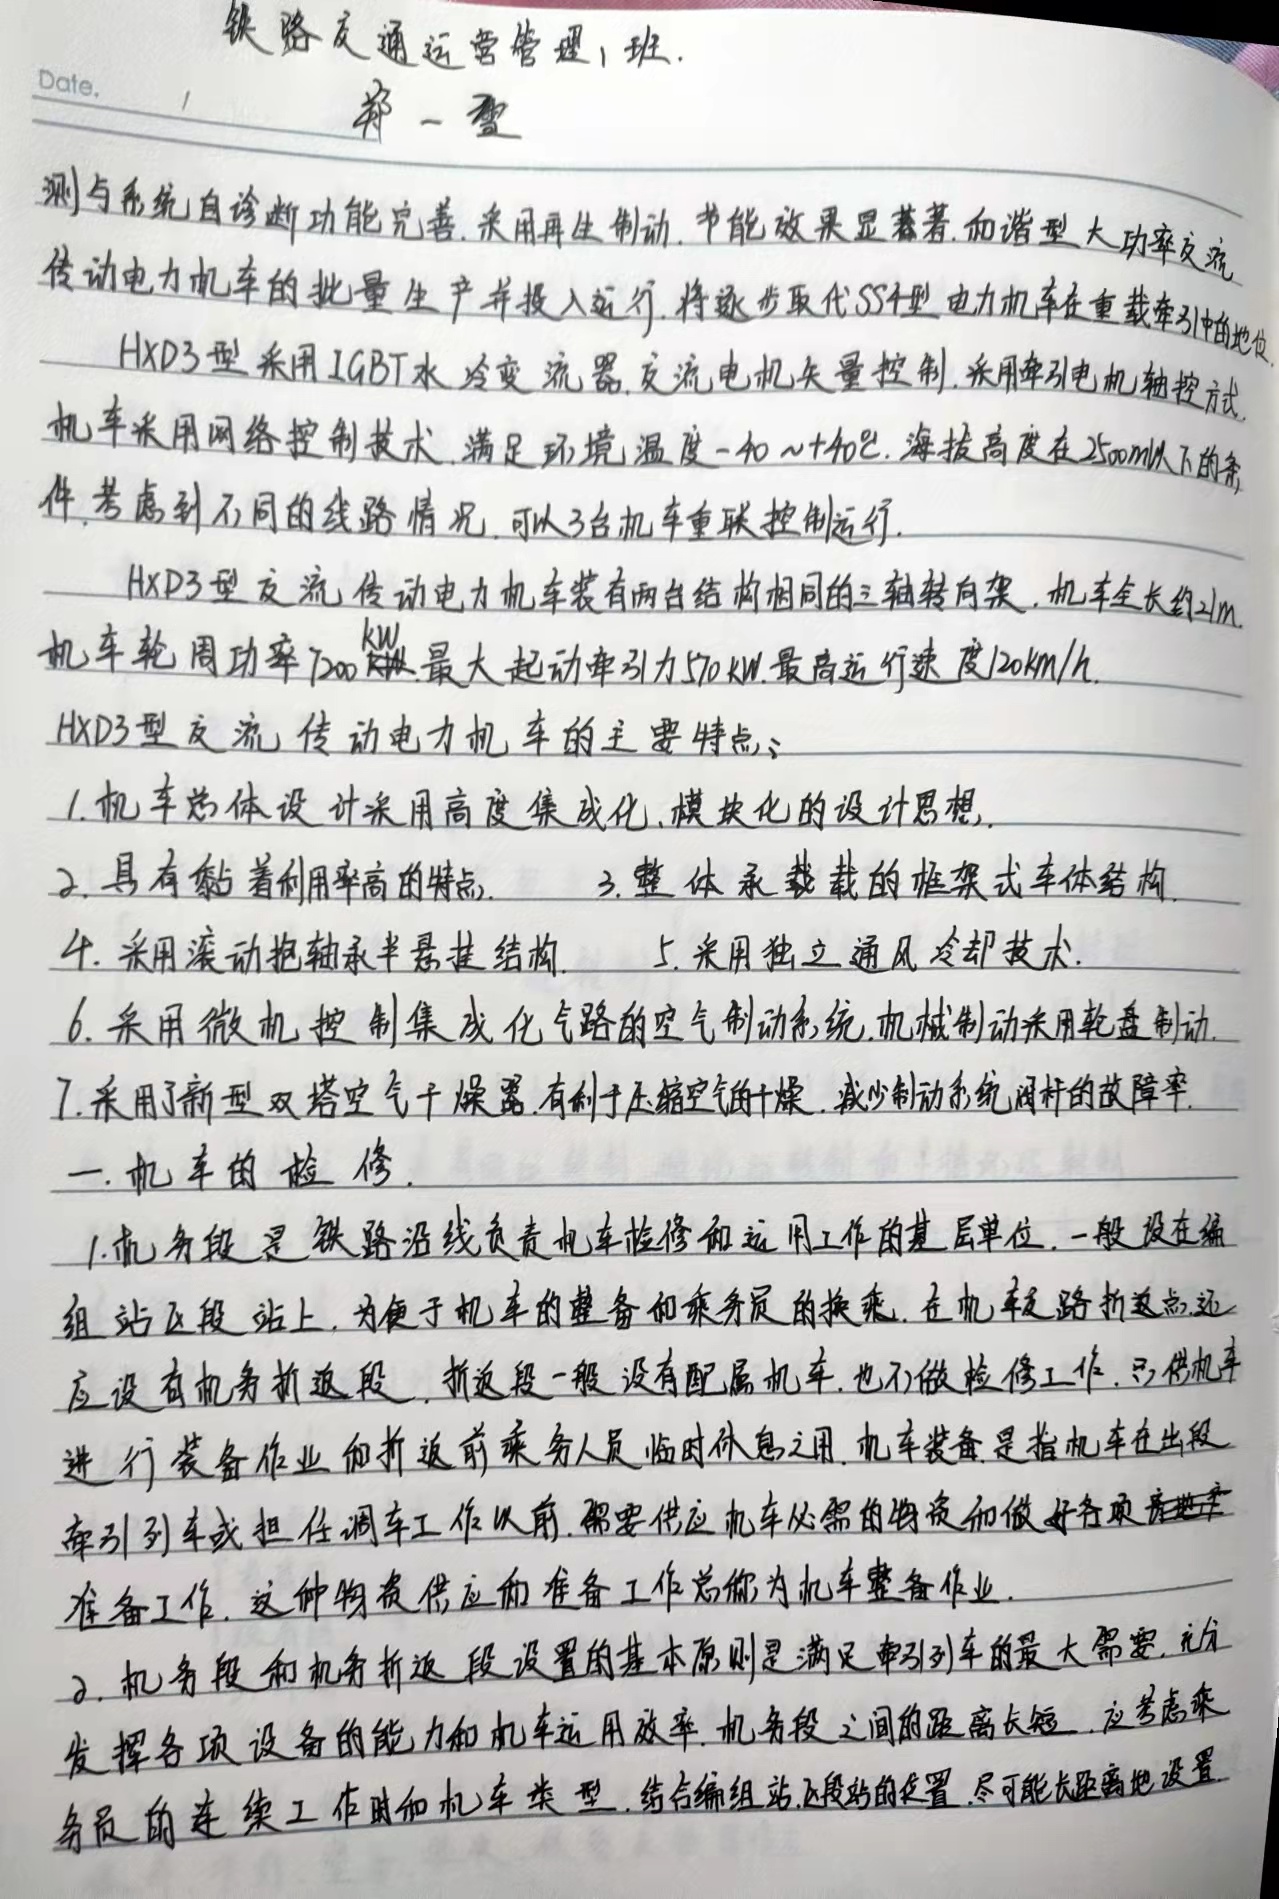 铁路交通运营管理1班.
Date. 1
郑一雪
测与系统自诊断功能完善.采用再生制动.节能效果显著.和谐型大功率交流
传动电力机车的批量生产并投入运行.将逐步取代SS4型电力机车在重载牵引中的地位.
HXD3型采用IGBT水冷变流器.交流电机矢量控制.采用牵引电机轴控方式.
机车采用网络控制技术.满足环境温度-40~+40℃.海拔高度在2500m以下的条
件.考虑到不同的线路情况.可以3台机车重联控制运行.
HXD3型交流传动电力机车装有两台结构相同的三轴转向架.机车全长约21m.
机车轮周功率7200kW.最大起动牵引力570kW.最高运行速度120km/h.
HXD3型交流传动电力机车的主要特点:
1.机车总体设计采用高度集成化、模块化的设计思想.
2.具有黏着利用率高的特点. 3.整体承载的框架式车体结构.
4.采用滚动抱轴承半悬挂结构. 5.采用独立通风冷却技术.
6.采用微机控制集成化气路的空气制动系统.机械制动采用轮盘制动.
7.采用了新型双塔空气干燥器.有利于压缩空气的干燥.减少制动系统阀杆的故障率.
一.机车的检修.
1.机务段是铁路沿线负责机车检修和运用工作的基层单位.一般设在编
组站区段站上.为便于机车的整备和乘务员的换乘.在机车交路折返点还
应设有机务折返段.折返段一般没有配属机车.也不做检修工作.只供机车
进行装备作业和折返前乘务人员临时休息之用.机车装备是指机车在出段
牵引列车或担任调车工作以前.需要供应机车必需的物资和做好各项
准备工作.这种物资供应和准备工作总称为机车整备作业.
2.机务段和机务折返段设置的基本原则是满足牵引列车的最大需要.充分
发挥各项设备的能力和机车运用效率.机务段之间的距离长短.应考虑乘
务员的连续工作时和机车类型.结合编组站.区段站的位置.尽可能长距离地设置.